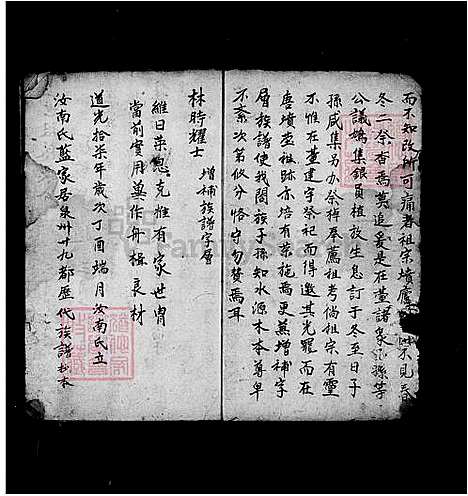 而不知改所可痛者祖宗墳廬 不見春
冬二祭香焉萬追爰是在董諸衆 孫等
公議鳩集銀員植放生息訂于冬至日子
孫咸集另办祭棹奉薦祖考倘祖宗有靈
不惟在董建字祭祀而得邀其光寵而在
唐墳塋祖跡亦培有榮施焉更兼增補字
層族譜使我閤族子孫知水源木本尊卑
不紊次第攸分恪守勿替焉耳
林時耀士 增補族譜字層
維日榮恩克雅有家世冑
當前實用藥作舟楫良材
道光拾柒年歲次丁酉端月汝南氏立
汝南氏藍家居泉州廿九都歷代族譜抄本